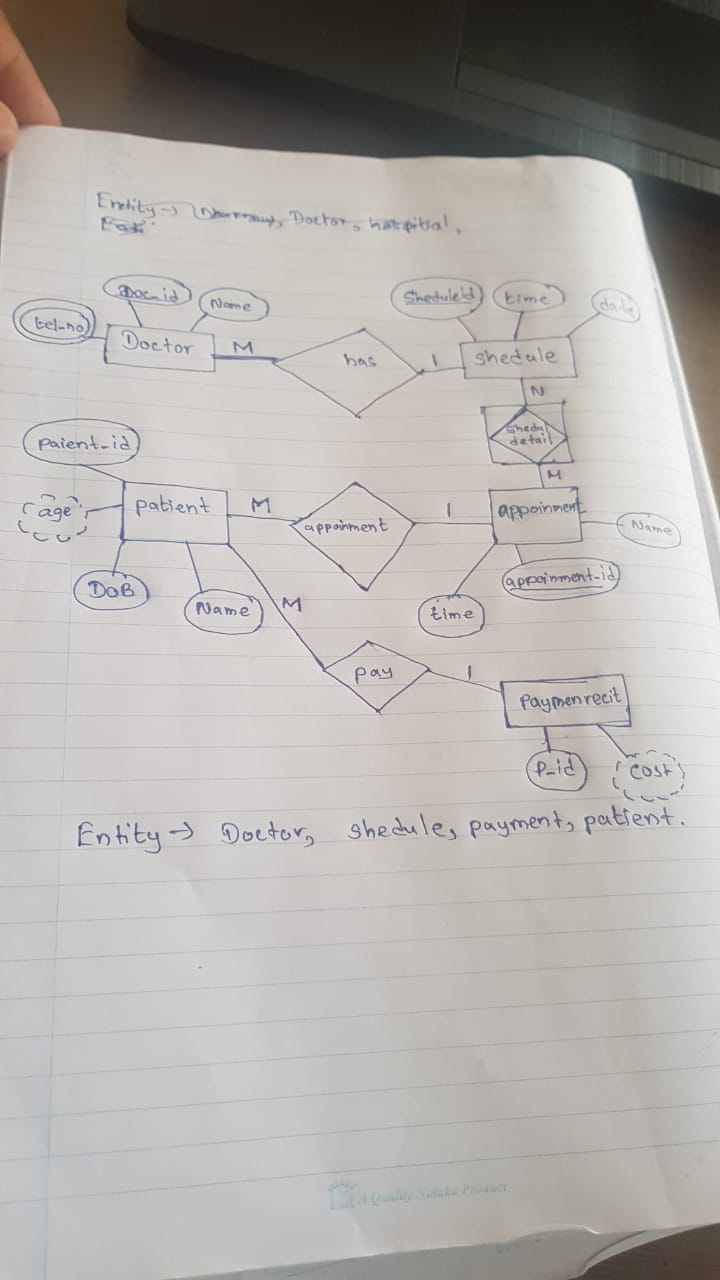 Entity → Doctor, hospital,
Doc_id
Name
tel-no
Doctor
M
has
1
Sheduleid
time
date
shedule
N
Shedu
detail
M
paient-id
age
patient
M
appoinment
1
appoinment
Name
DoB
Name
M
time
appoinment-id
pay
1
Paymenrecit
P-id
cost
Entity → Doctor, shedule, payment, patient.
A Quality Nataku Product